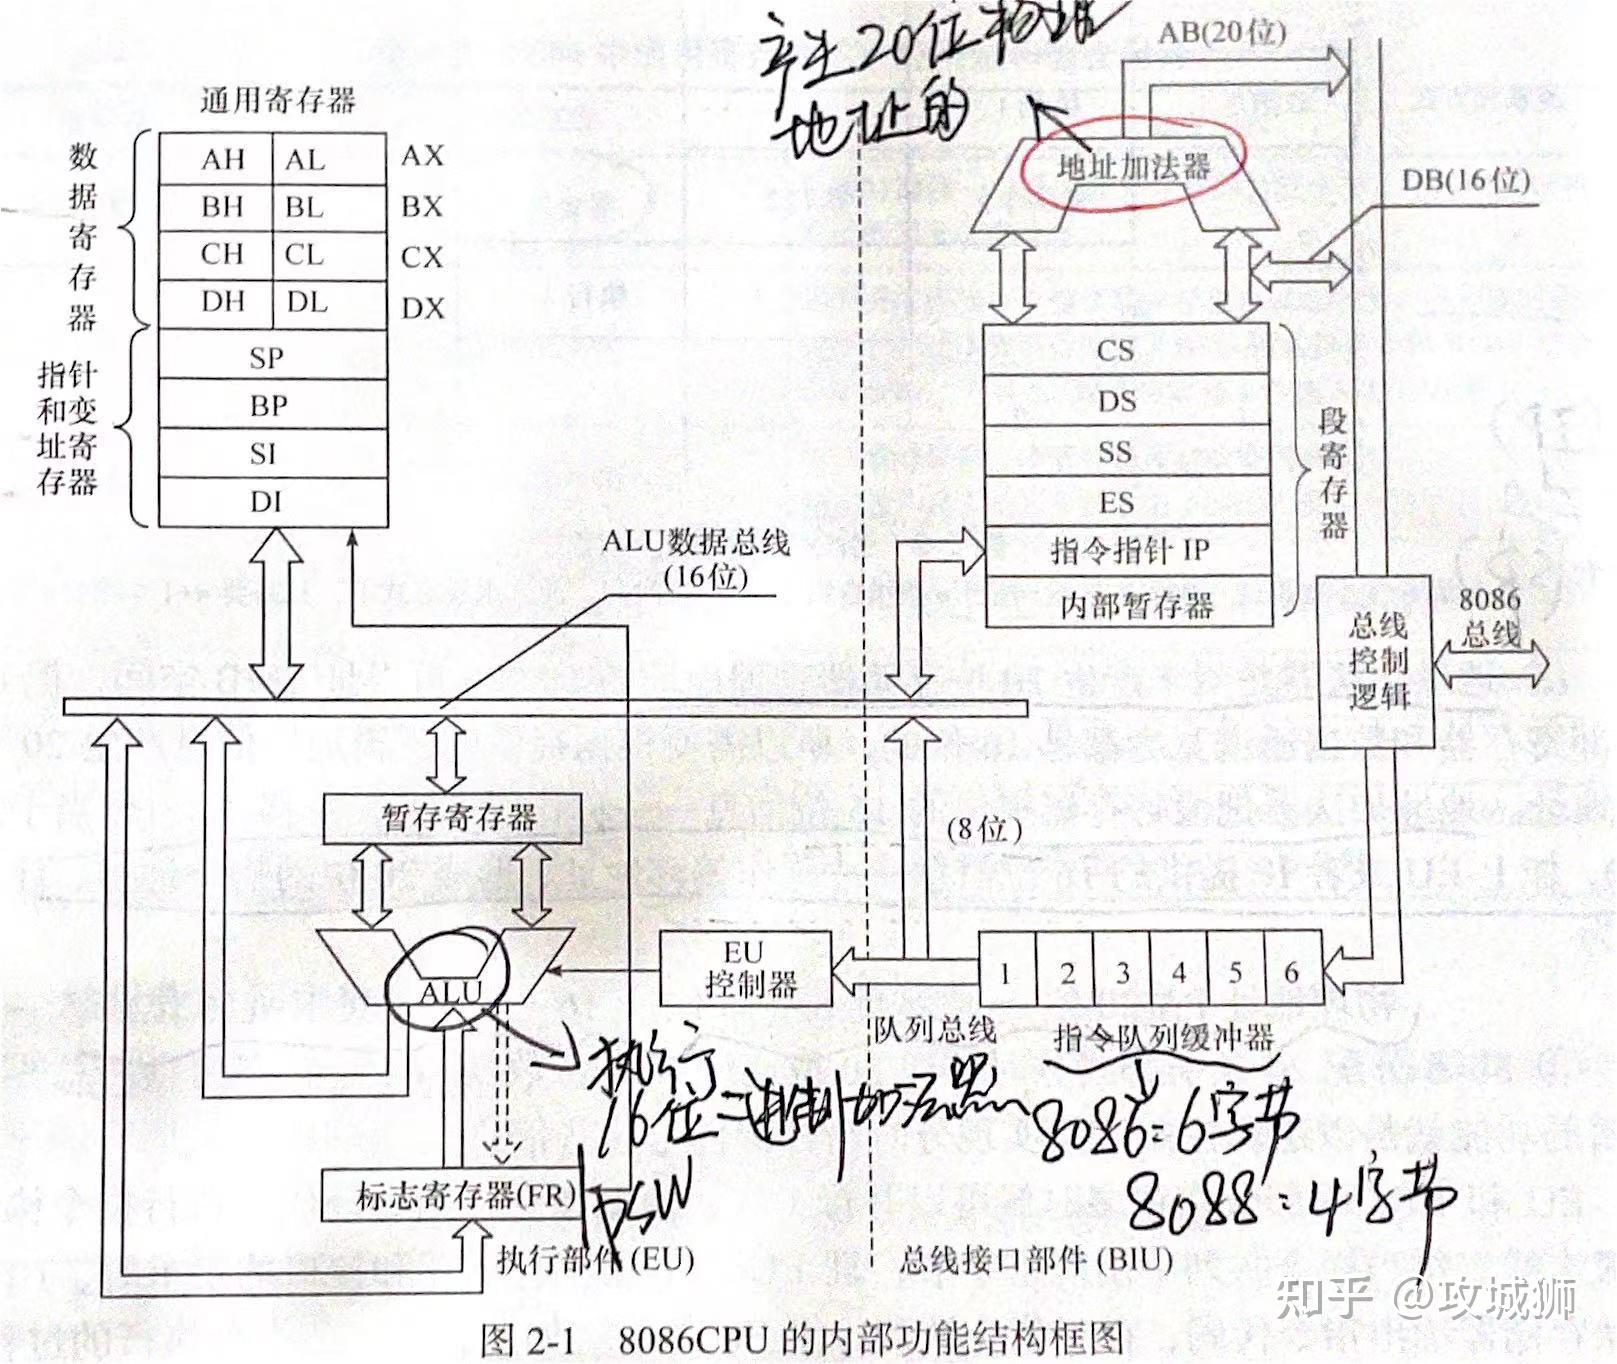 产生20位物理
地址的
AB(20位)
通用寄存器
数据寄存器
AH AL AX
BH BL BX
CH CL CX
DH DL DX
地址加法器
DB(16位)
指针
和变
址寄
存器
SP
BP
SI
DI
CS
DS
SS
ES
指令指针 IP
内部暂存器
段寄存器
ALU数据总线
(16位)
总线
控制
逻辑
8086
总线
暂存寄存器
(8位)
ALU
EU
控制器
1 2 3 4 5 6
队列总线
指令队列缓冲器
执行
16位二进制
8086:6字节
8088:4字节
标志寄存器(FR)
PSW
执行部件(EU)
总线接口部件(BIU)
知乎 @攻城狮
图 2-1 8086CPU 的内部功能结构框图